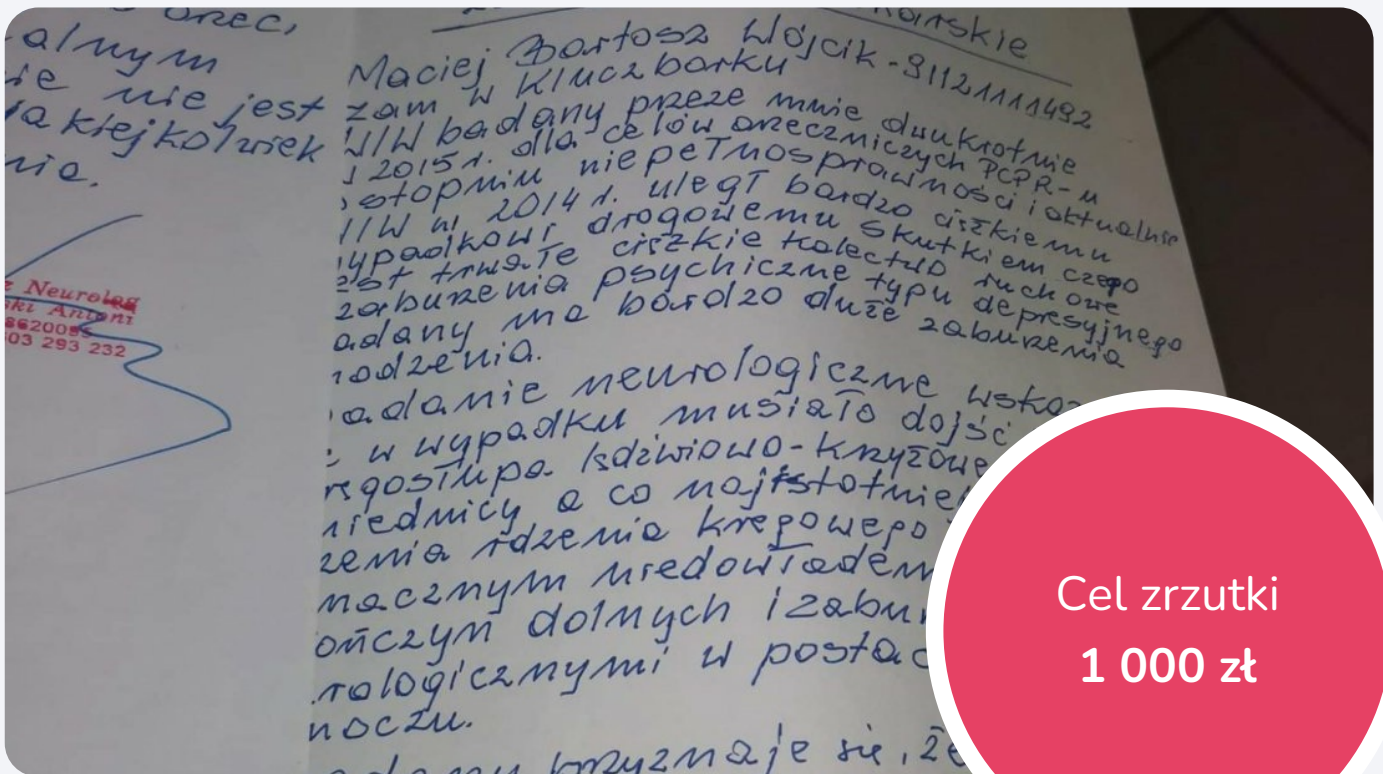 orzec,
alnym
ie nie jest
jakiejkolwiek
nie.
Neurolog
ski Antoni
03 293 232
Maciej Bartosz Wójcik - 91121111492
zam w Kluczborku
W/W badany przeze mnie dwukrotnie
w 2015 r. dla celów orzeczniczych PCPR-u
stopniu niepełnosprawności i aktualnie
W/W w 2014 r. uległ bardzo ciężkiemu
wypadkowi drogowemu skutkiem czego
est trwałe ciężkie kalectwo ruchowe
zaburzenia psychiczne typu depresyjnego
adany ma bardzo duże zaburzenia
hodzenia.
adanie neurologiczne wska
w wypadku musiało dojść
ręgosłupa lędźwiowo-krzyżowe
miednicy a co najistotnie
zenia rdzenia kręgowego
nacznym niedowładem
ończyn dolnych i zabur
rologicznymi w postac
moczu.
adany przyznaje się, że
Cel zrzutki
1 000 zł